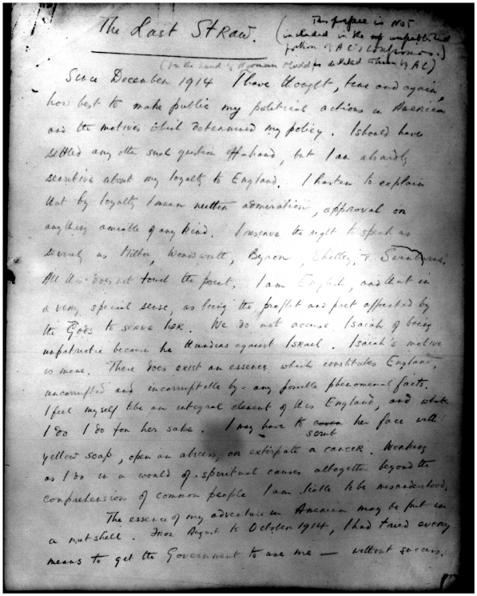 The Last Straw.
(This preface is not
included in the unpublished
portion of A C's Confessions.)
(In the hand of Norman Mudd as dictated to him by AC)
Since December 1914 I have thought, time and again,
how best to make public my political actions in America
and the motives which determined my policy. I should have
settled any other such question offhand, but I am absurdly
sensitive about my loyalty to England. I hasten to explain
that by loyalty I mean neither admiration, approval or
anything amiable of any kind. I reserve the right to speak as
severely as Milton, Wordsworth, Byron, Shelley, & Swinburne.
All this does not touch the point. I am English, and that in
a very special sense, as being the prophet and poet appointed by
the Gods to serve her. We do not accuse Isaiah of being
unpatriotic because he thunders against Israel. Isaiah's motive
is mine. There does exist an essence which constitutes England,
uncorrupted and incorruptible by any possible phenomenal facts.
I feel myself to be an integral element of this England, and what
I do I do for her sake. I may have to scrub her face with
yellow soap, open an abscess, or extirpate a cancer. Working
as I do in a world of spiritual causes altogether beyond the
comprehension of common people I am liable to be misunderstood.
The essence of my adventure in America may be put in
a nutshell. From August to October 1914, I had tried every
means to get the Government to use me — without success.